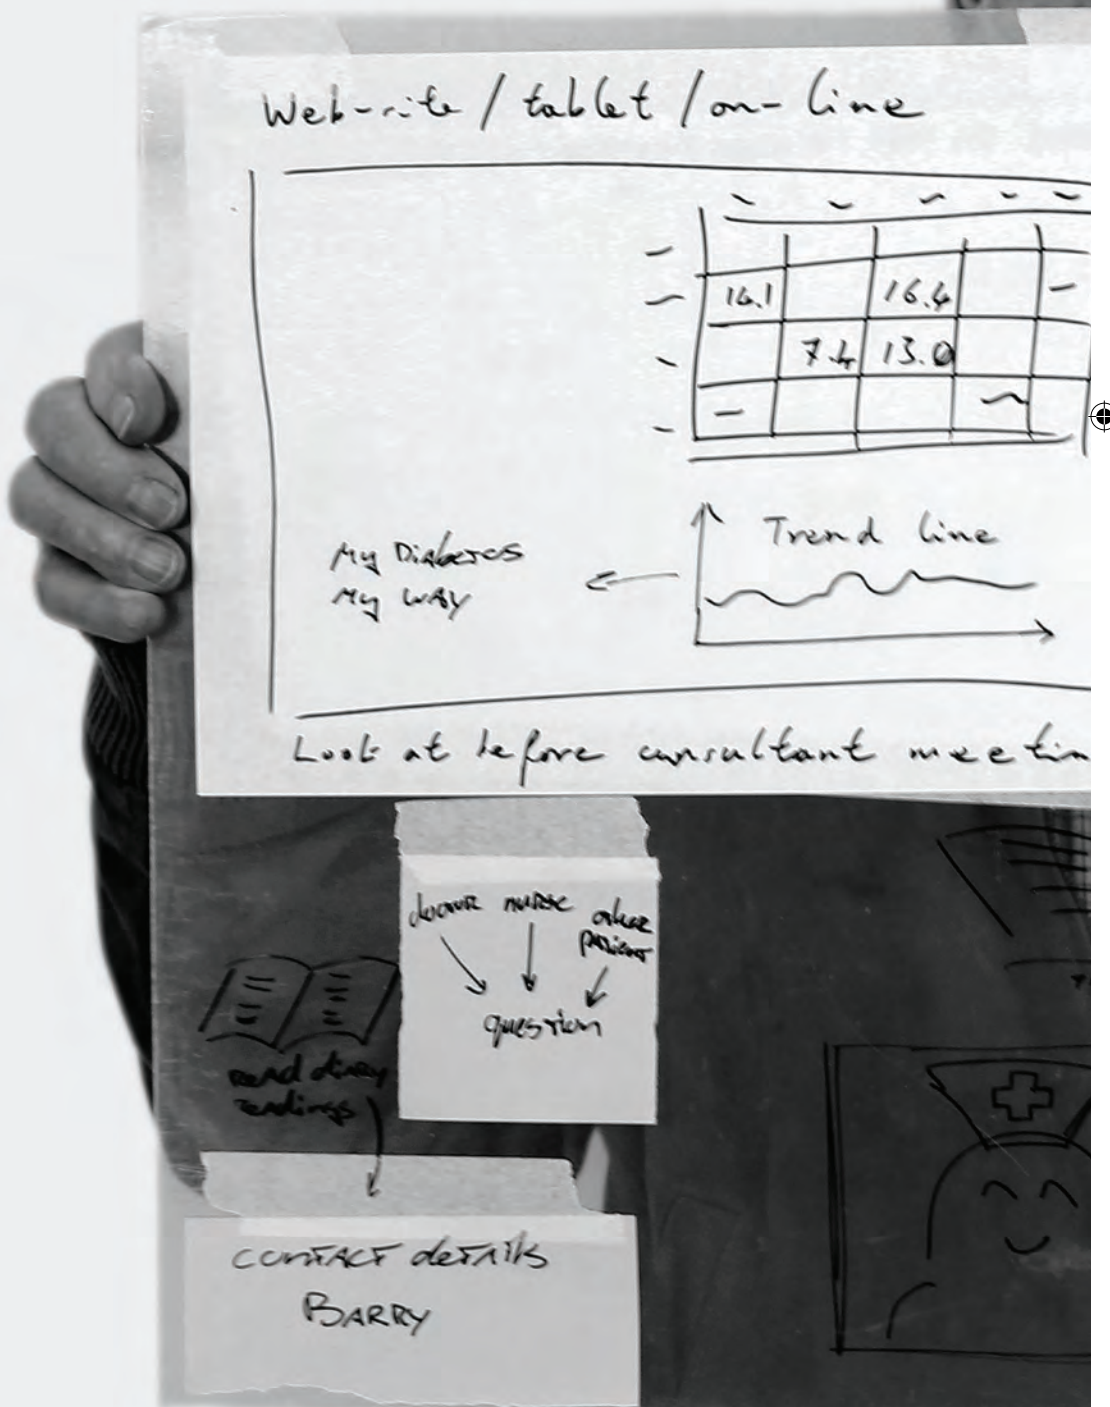 Web-site / tablet / on-line
14.1 16.4
7.4 13.0
Trend line
My Diabetes
My Way
Look at before consultant meetin
doctor nurse other
patient
question
read diary
readings
contact details
Barry